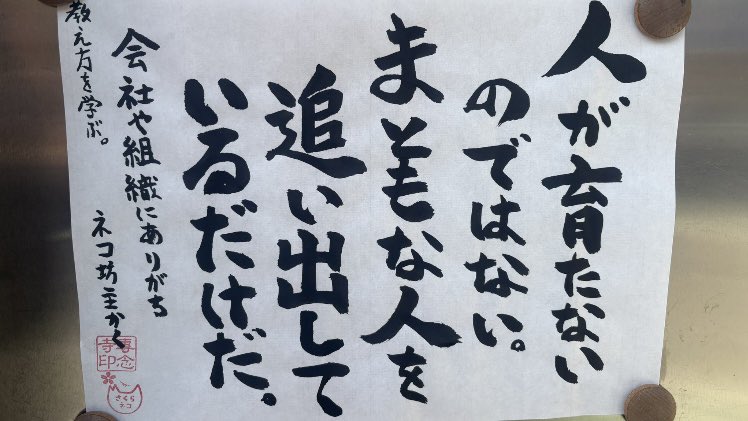 人が育たない
のではない。
まともな人を
追い出して
いるだけだ。
会社や組織にありがち
ネコ坊主かく
教え方を学ぶ。
専念
寺印
さくら
ネコ